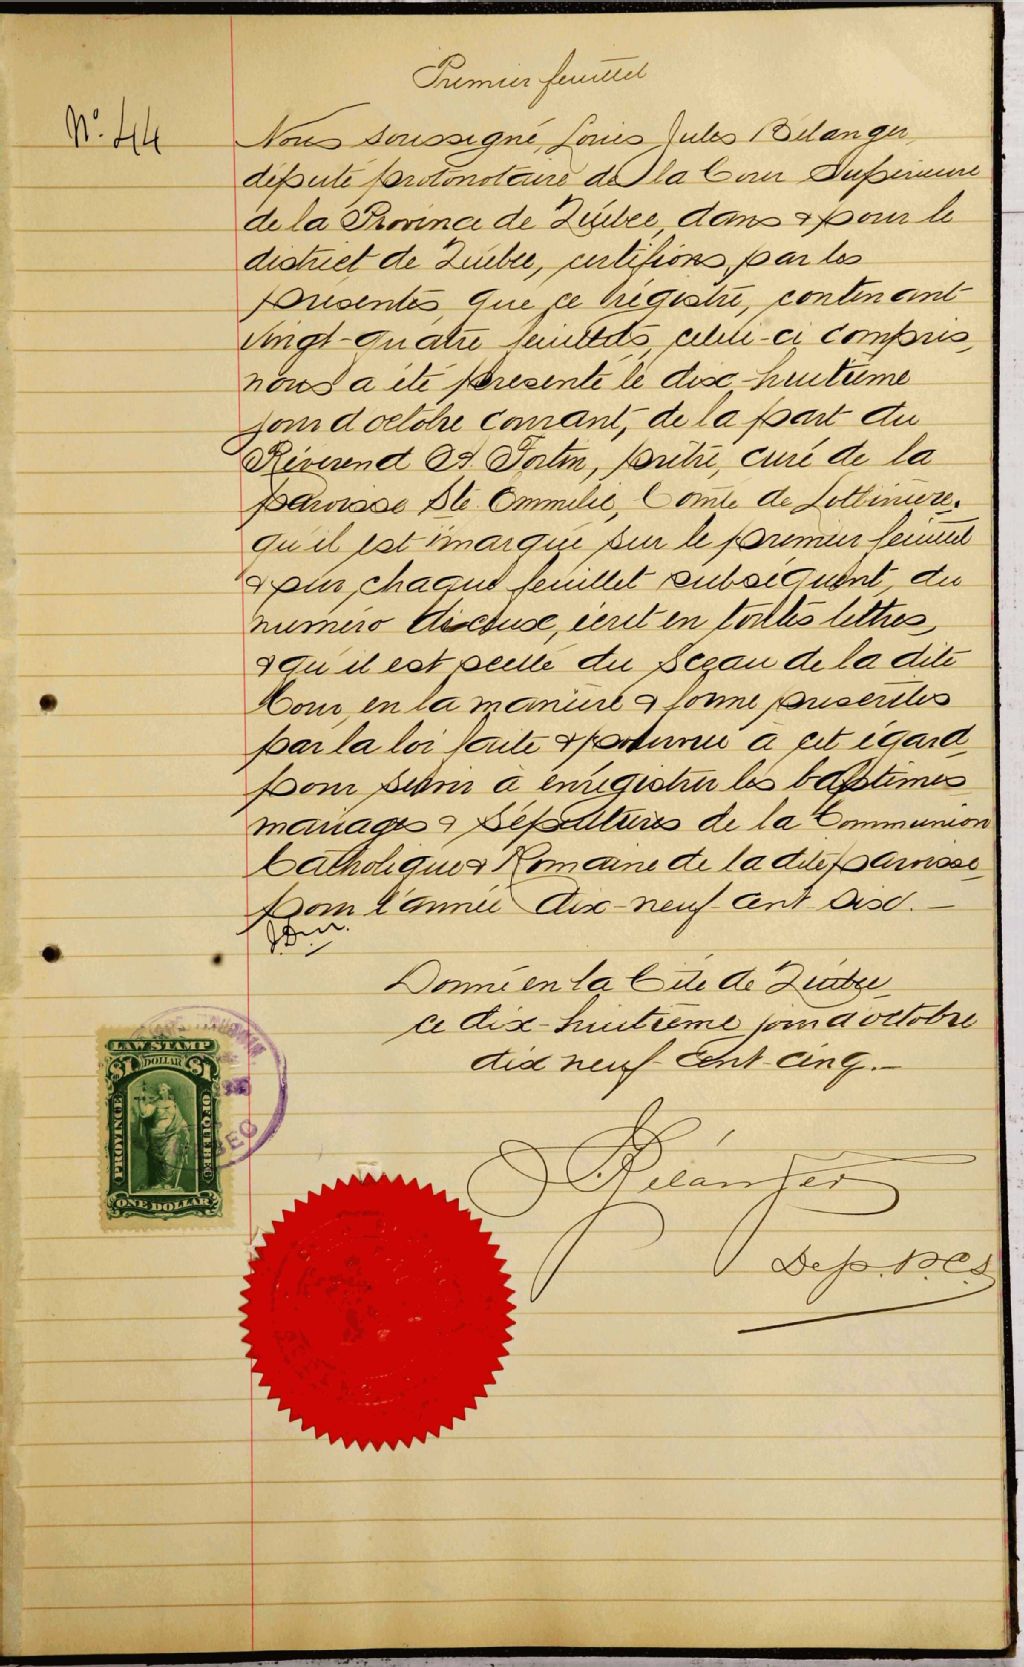 Premier feuillet
N° 44
Nous soussigné, Louis Jules Bélanger,
député protonotaire de la Cour Supérieure
de la Province de Québec, dans & pour le
district de Québec, certifions, par les
présentes, que ce régistre, contenant
vingt-quatre feuillets, celui-ci compris,
nous a été présenté le dix-huitième
jour d'octobre courant, de la part du
Révérend Fortin, prêtre, curé de la
paroisse Ste Emmélie, Comté de Lotbinière.
qu'il est marqué sur le premier feuillet
& sur chaque feuillet subséquent, du
numéro d'iceux, écrit en toutes lettres,
& qu'il est scellé du sceau de la dite
Cour, en la manière & forme prescrites
par la loi faite & pourvue à cet égard,
pour servir à enrégistrer les baptêmes
mariages & sépultures de la Communion
Catholique & Romaine de la dite paroisse
pour l'année dix-neuf-cent-six.—
Donné en la Cité de Québec
ce dix-huitième jour d'octobre
dix neuf-cent-cinq.—
LAW STAMP
$1 DOLLAR $1
PROVINCE OF QUEBEC
ONE DOLLAR
Bélanger
Dep. P.C.S